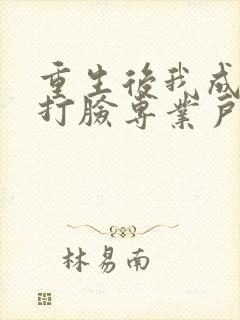 重生後我成
打臉專業戶
林易南